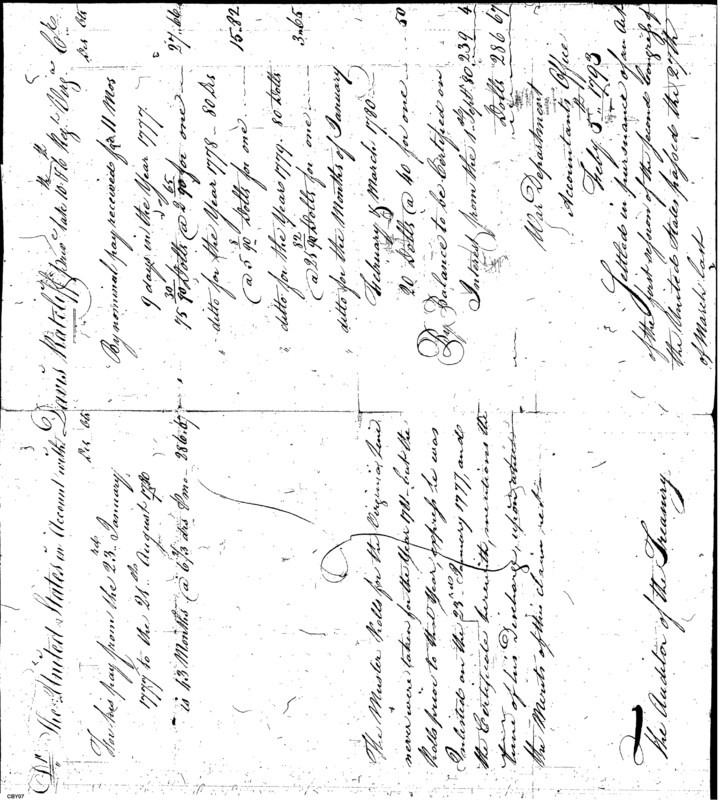 Dr. The United States in Account with Davis Ratcliff late 10 & 6 Regt Virg a Cr.
Drs Cts
To his pay from the 23rd January
1777 to the 28th August 1780
is 43 Months @ 6 2/3 drs P mo 286.67
The Muster Rolls for the Virginia Line
never were taken for the Year 1781 but the
Rolls prior to that Year, express he was
Enlisted on the 23rd January 1777, and
the Certificate herewith, mentions the
time of his Discharge, upon which
the Merits of this claim rest
The Auditor of the Treasury
Drs Cts
By nominal pay received for 11 Mos
9 days in the Year 1777
75 30/90 Dolls @ 2 65/90 for one 27.66
ditto for the Year 1778 - 80 Drs
@ 5 8/90 Dolls for one 15.82
ditto for the Year 1779 - 80 Dolls
@ 25 82/90 Dolls for one 3.65
ditto for the Months of January
February & March 1780
20 Dolls @ 40 for one 50
By Balance to be Certified on
Interest from the 1. Sept 80 239 4
Dolls 286 67
War Department
Accountants Office
Feby 5th 1793
Settled in pursuance of an Act
of the first session of the second Congress of
the United States passed the 27th
of March last
CBY97